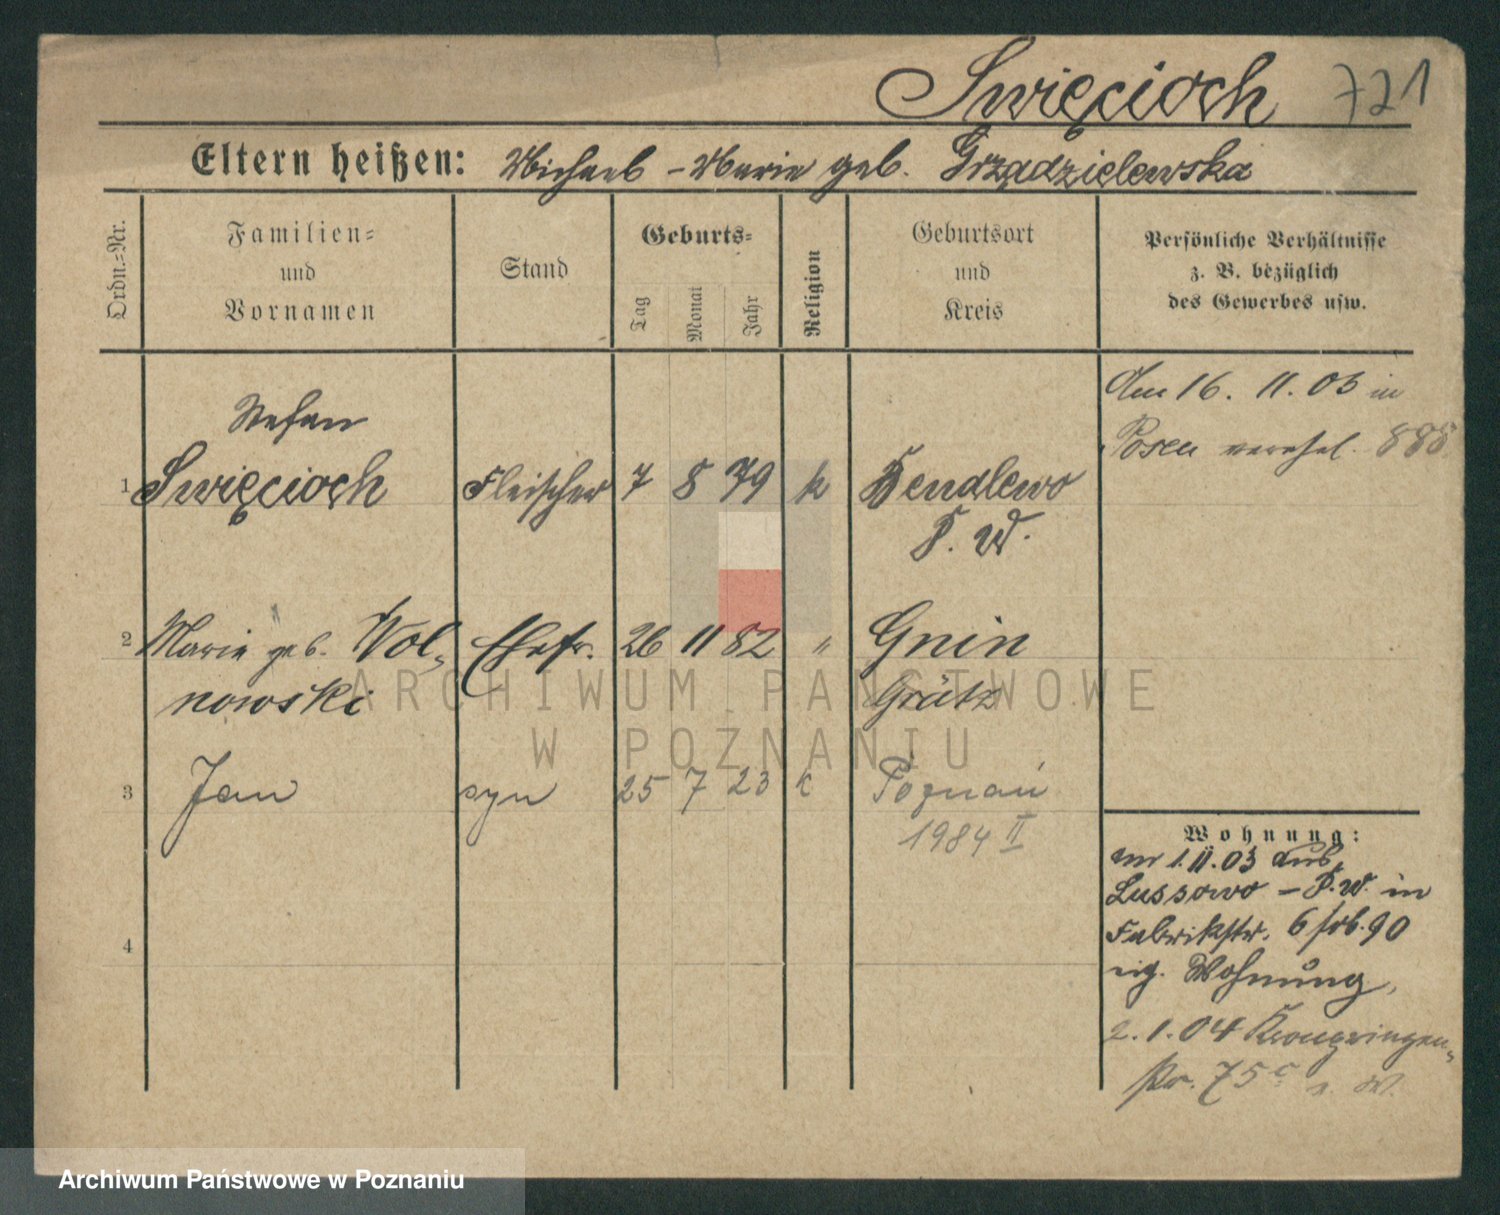 Święcioch 721
Eltern heißen: Michael - Marie geb. Grządzielewska
Ordn.-Nr.
Familien-
und
Vornamen
Stand
Geburts-
Tag
Monat
Jahr
Religion
Geburtsort
und
Kreis
Persönliche Verhältnisse
z. B. bezüglich
des Gewerbes usw.
Am 16. 11. 03 in
Posen verehel.
Stefan
1 Swięcioch Fleischer 7 8 79 k Bendlewo
P. W.
2 Marie geb. Wol- Ehefr. 26 11 82 " Gnin
nowski Grätz
3 Jan syn 25 7 23 k Poznań
1984 II
4
Wohnung:
1.11.03 aus
Lussowo - P.W. in
Fabrikstr. 6 frb. 90
eig. Wohnung,
2.1.04 Kronprinzen-
str. 75c
ARCHIWUM PAŃSTWOWE
W POZNANIU
Archiwum Państwowe w Poznaniu